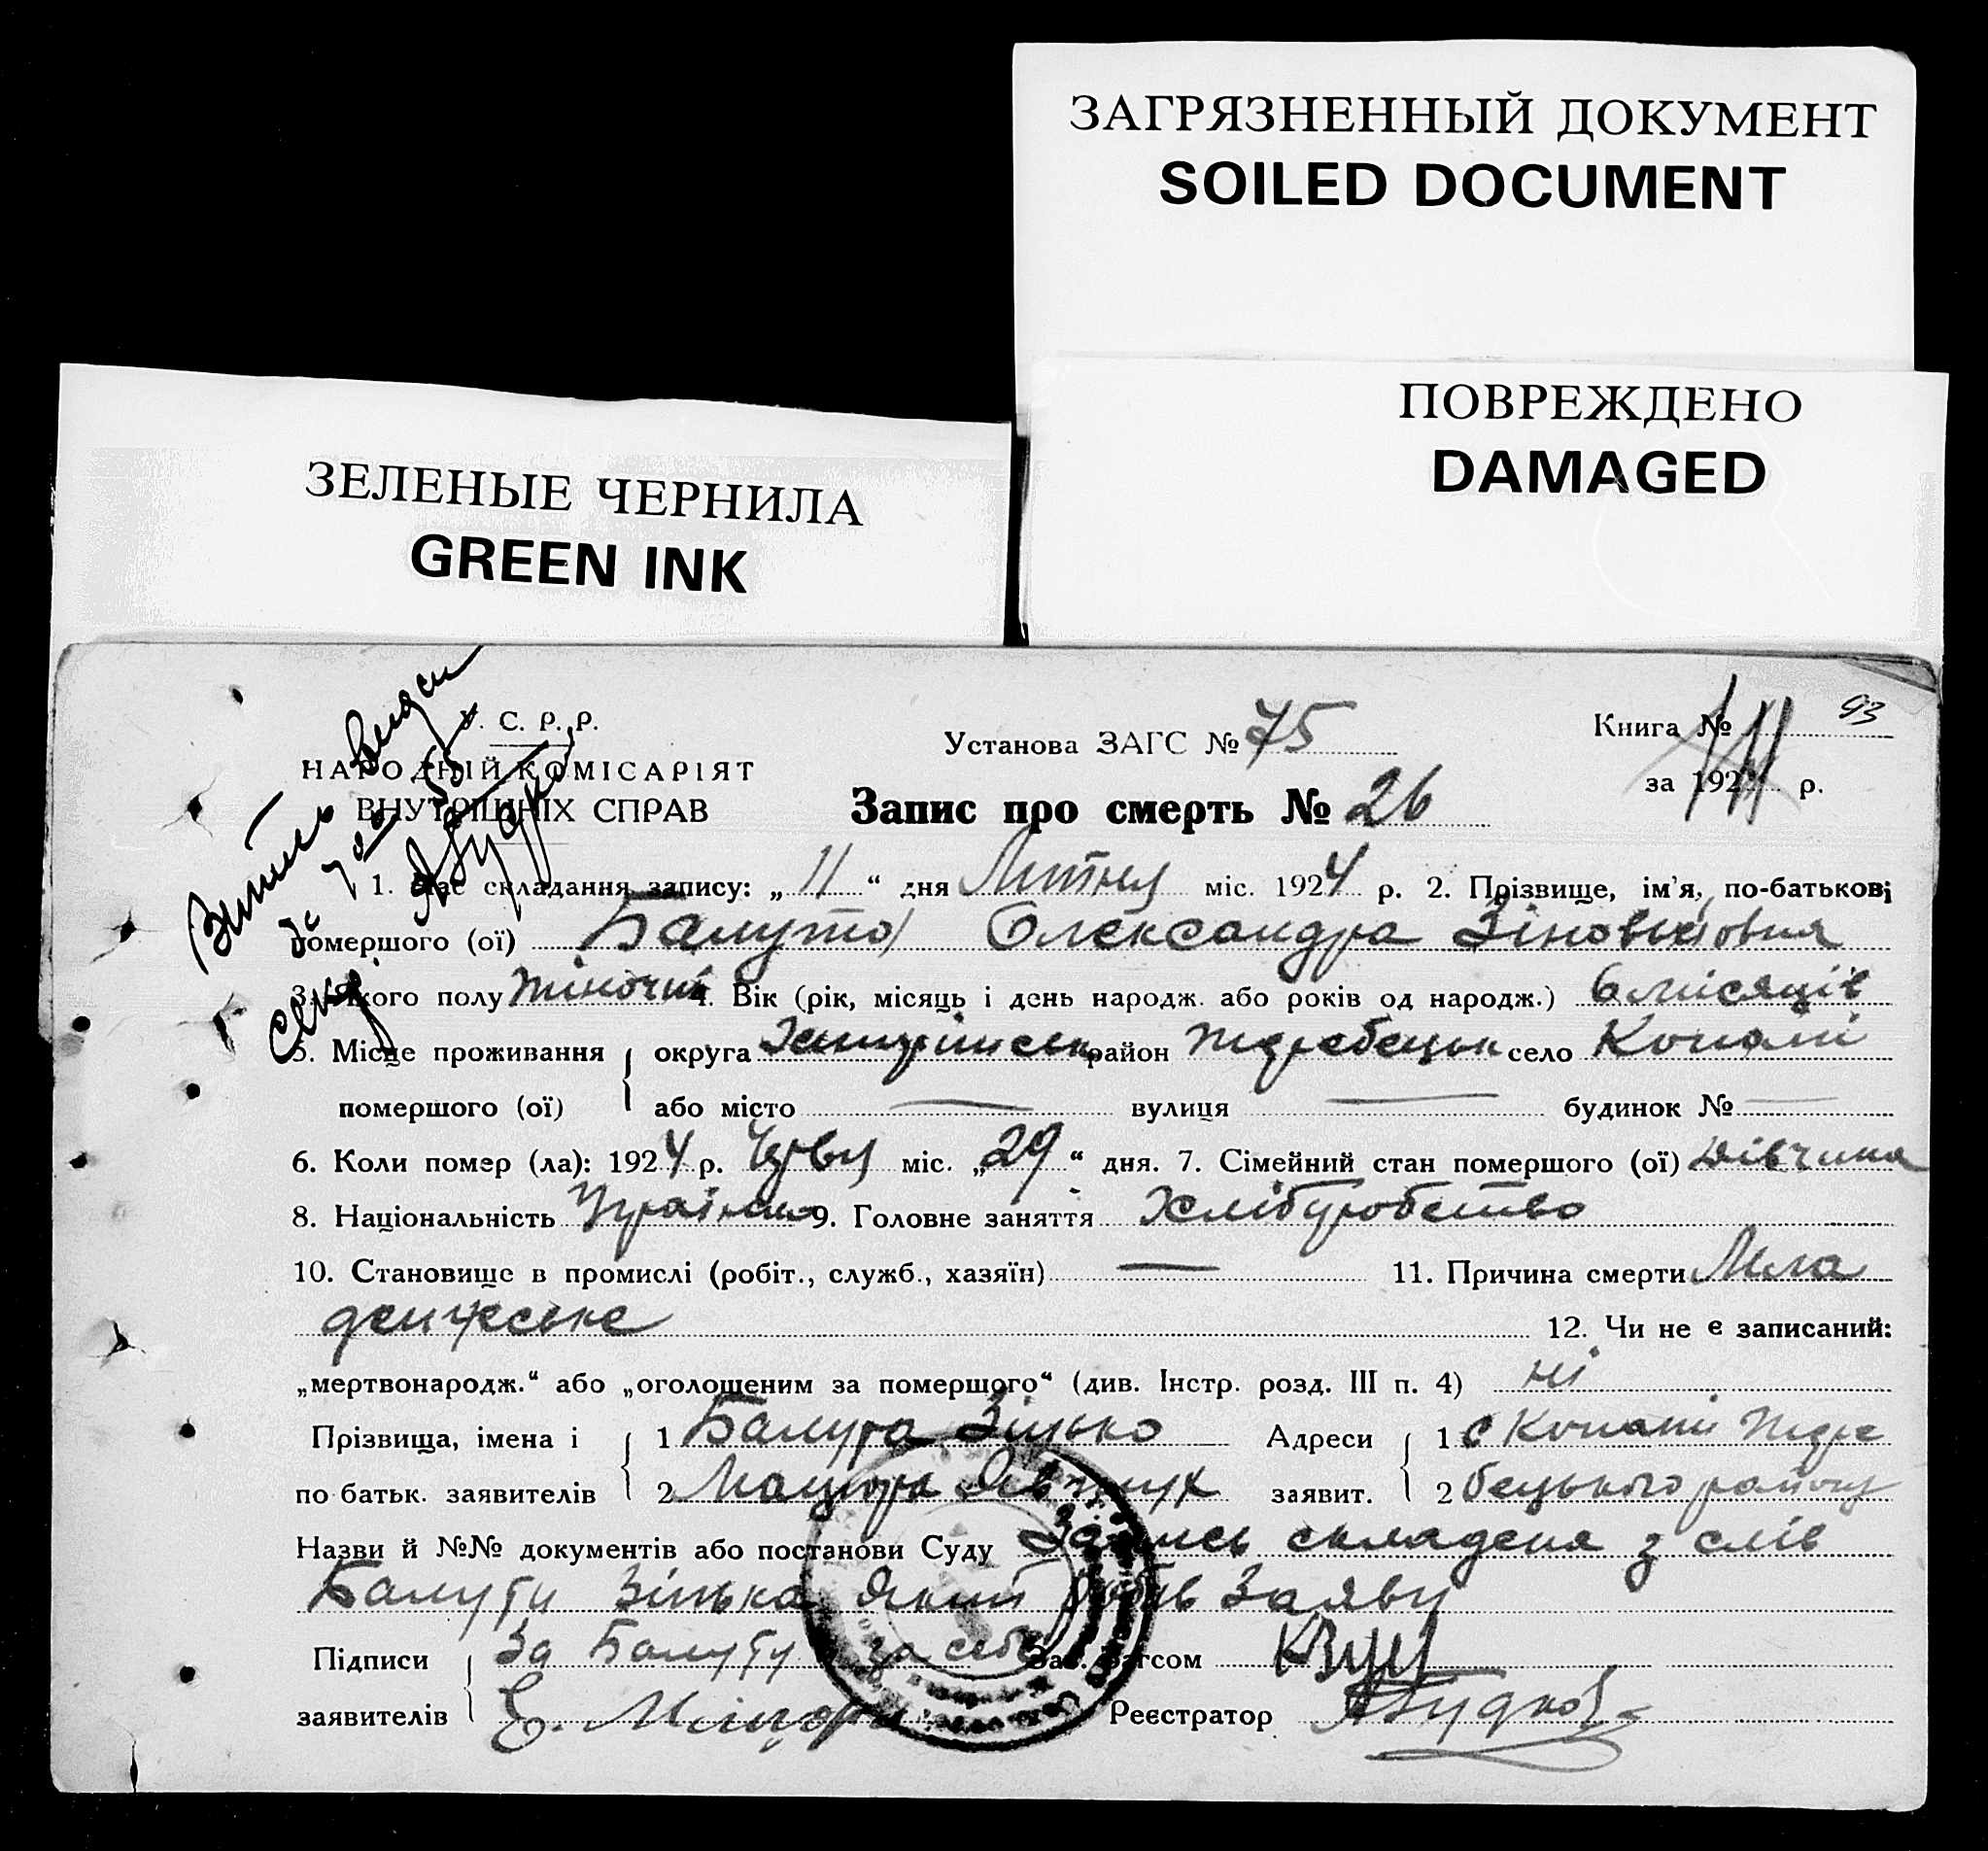 ЗАГРЯЗНЕННЫЙ ДОКУМЕНТ
SOILED DOCUMENT
ПОВРЕЖДЕНО
DAMAGED
ЗЕЛЕНЫЕ ЧЕРНИЛА
GREEN INK
У. С. Р. Р.
НАРОДНІЙ КОМІСАРІЯТ
ВНУТРІШНІХ СПРАВ
Установа ЗАГС № 75
Книга № 93
за 192 р.
Запис про смерть № 26
1. Час складання запису: „ 11 “ дня Липня міс. 1924 р. 2. Прізвище, ім'я, по-батькові
помершого (ої) Балута Олександра
3. Якого полу жіночий 4. Вік (рік, місяць і день народж. або років од народж.) 6 місяців
5. Місце проживання округа район село Копані
помершого (ої) або місто — вулиця — будинок № —
6. Коли помер (ла): 1924 р. міс. „ 29 “ дня. 7. Сімейний стан помершого (ої) дівчина
8. Національність 9. Головне заняття Хліборобство
10. Становище в промислі (робіт., служб., хазяїн) — 11. Причина смерти
12. Чи не є записаний:
„мертвонародж.“ або „оголошеним за помершого“ (див. Інстр. розд. III п. 4) ні
Прізвища, імена і 1 Балута Зінько Адреси 1 с Копані Жере
по батьк. заявителів 2 заявит. 2 бецького району
Назви й №№ документів або постанови Суду Запись складена з слів
Балути Зінька Який робив Заяву
Підписи За Балуту за себе Зав. Загсом
заявителів Реєстратор